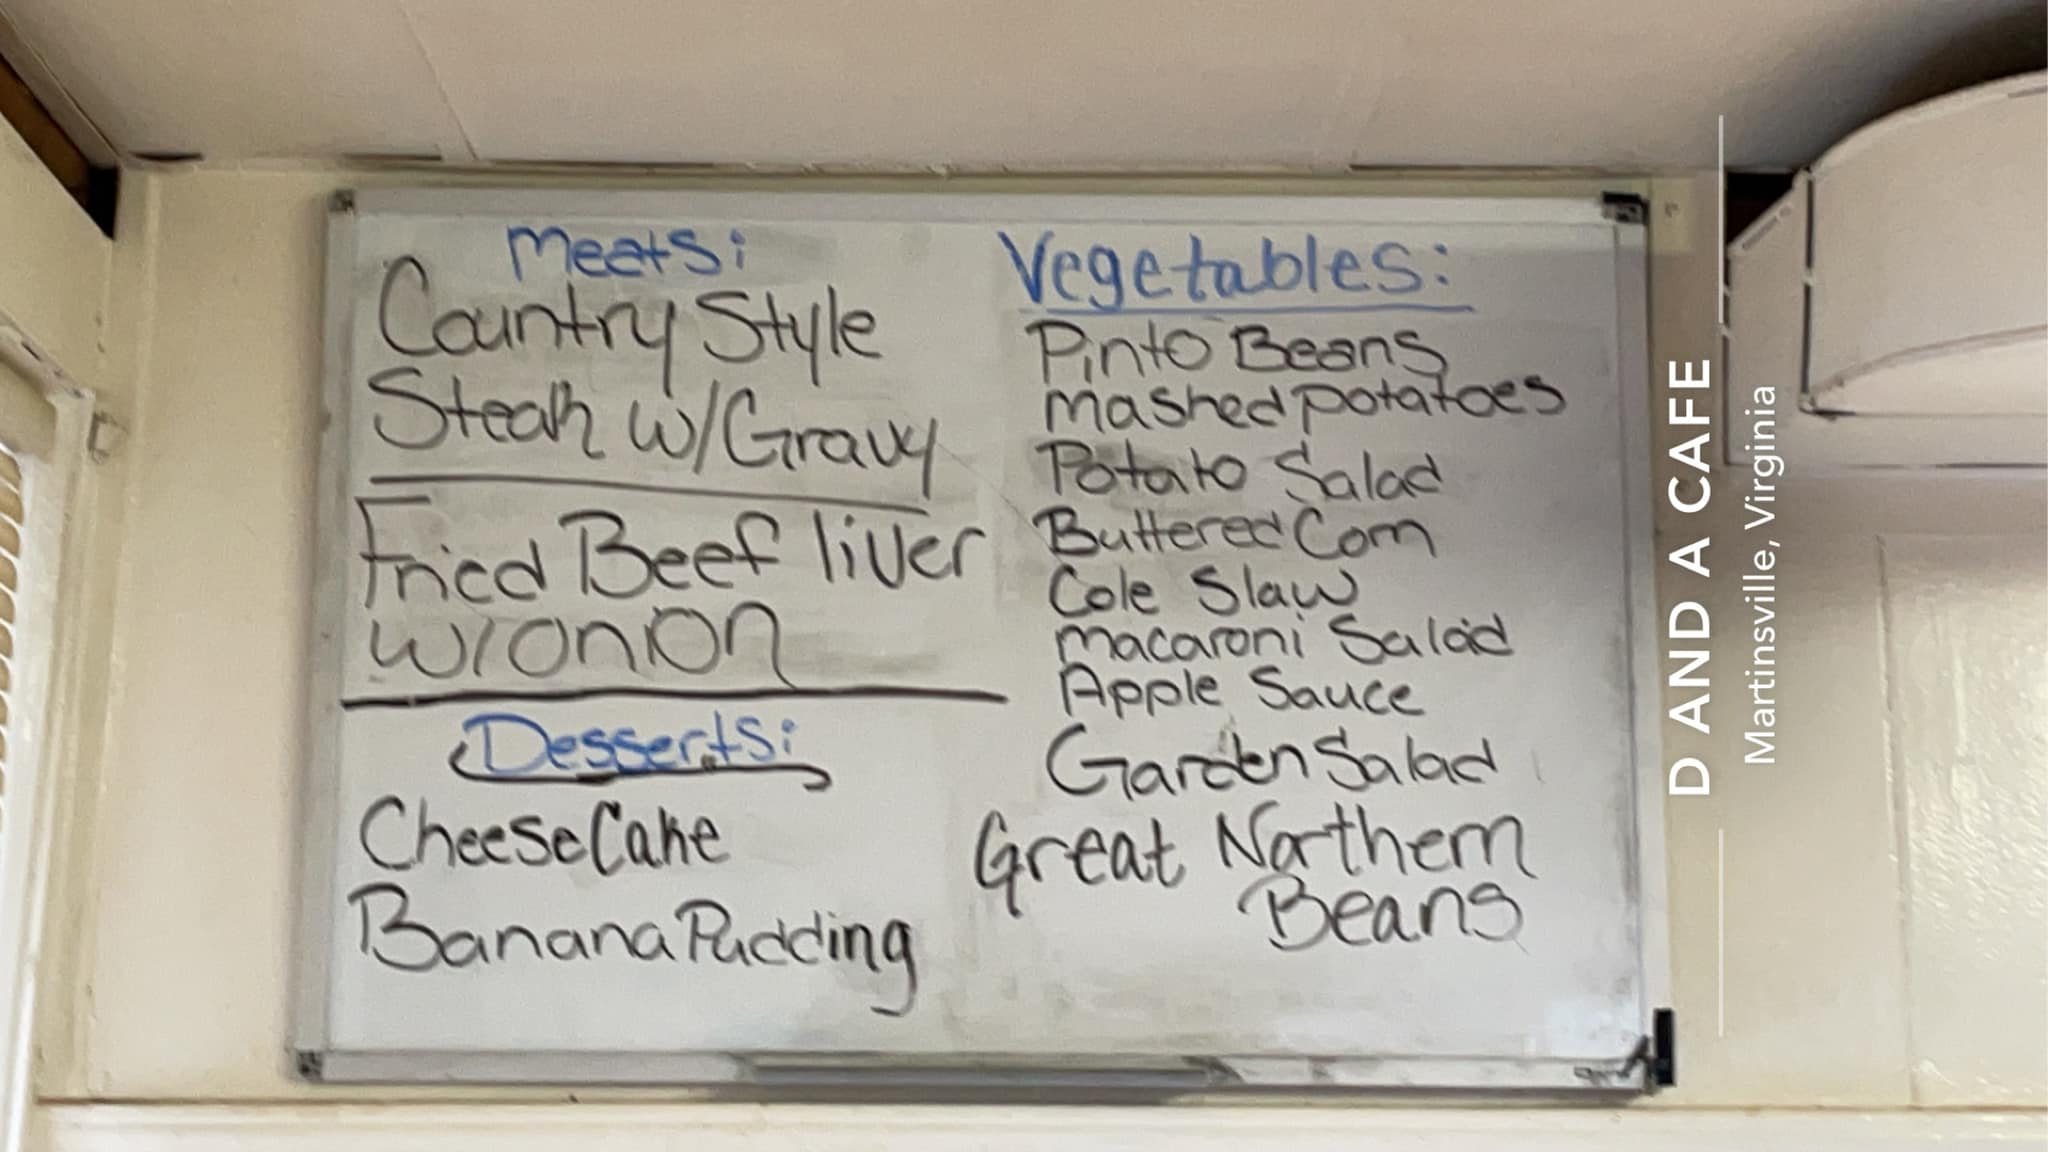 Meats:
Country Style
Steak w/Gravy
Fried Beef liver
w/onion
Desserts:
Cheese Cake
Banana Pudding
Vegetables:
Pinto Beans
mashed potatoes
Potato Salad
Buttered Corn
Cole Slaw
macaroni Salad
Apple Sauce
Garden Salad
Great Northern
Beans
D AND A CAFE
Martinsville, Virginia